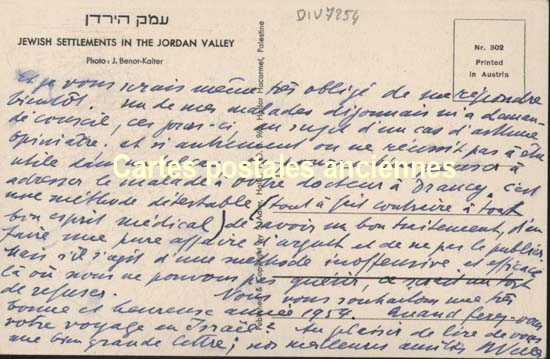 עמק הירדן
DIV7254
JEWISH SETTLEMENTS IN THE JORDAN VALLEY
Photo: J. Benor-Kalter
Nr. 302
Printed
in Austria
et je vous serais même très obligé de me répondre
bientôt. Un de mes malades dijonnais m'a deman-
dé conseil, ces jours-ci, au sujet d'un cas d'asthme
opiniâtre. et si autrement on ne réussit pas à être
utile dans
adresser le malade à votre docteur à Drancy. C'est
une méthode détestable (tout à fait contraire à tout
bon esprit médical) de savoir un bon traitement, d'en
faire une pure affaire d'argent et de ne pas le publier.
mais s'il s'agit d'une méthode inoffensive et efficace
là où nous ne pouvons pas guérir, ce serait un tort
de refuser. Nous vous souhaitons une très
bonne et heureuse année 1954. Quand ferez-vous
votre voyage en Israël? Au plaisir de lire de vous
une bien grande lettre; nos meilleures amitiés
Cartes postales anciennes
Hadar Hacarmel, Palestine